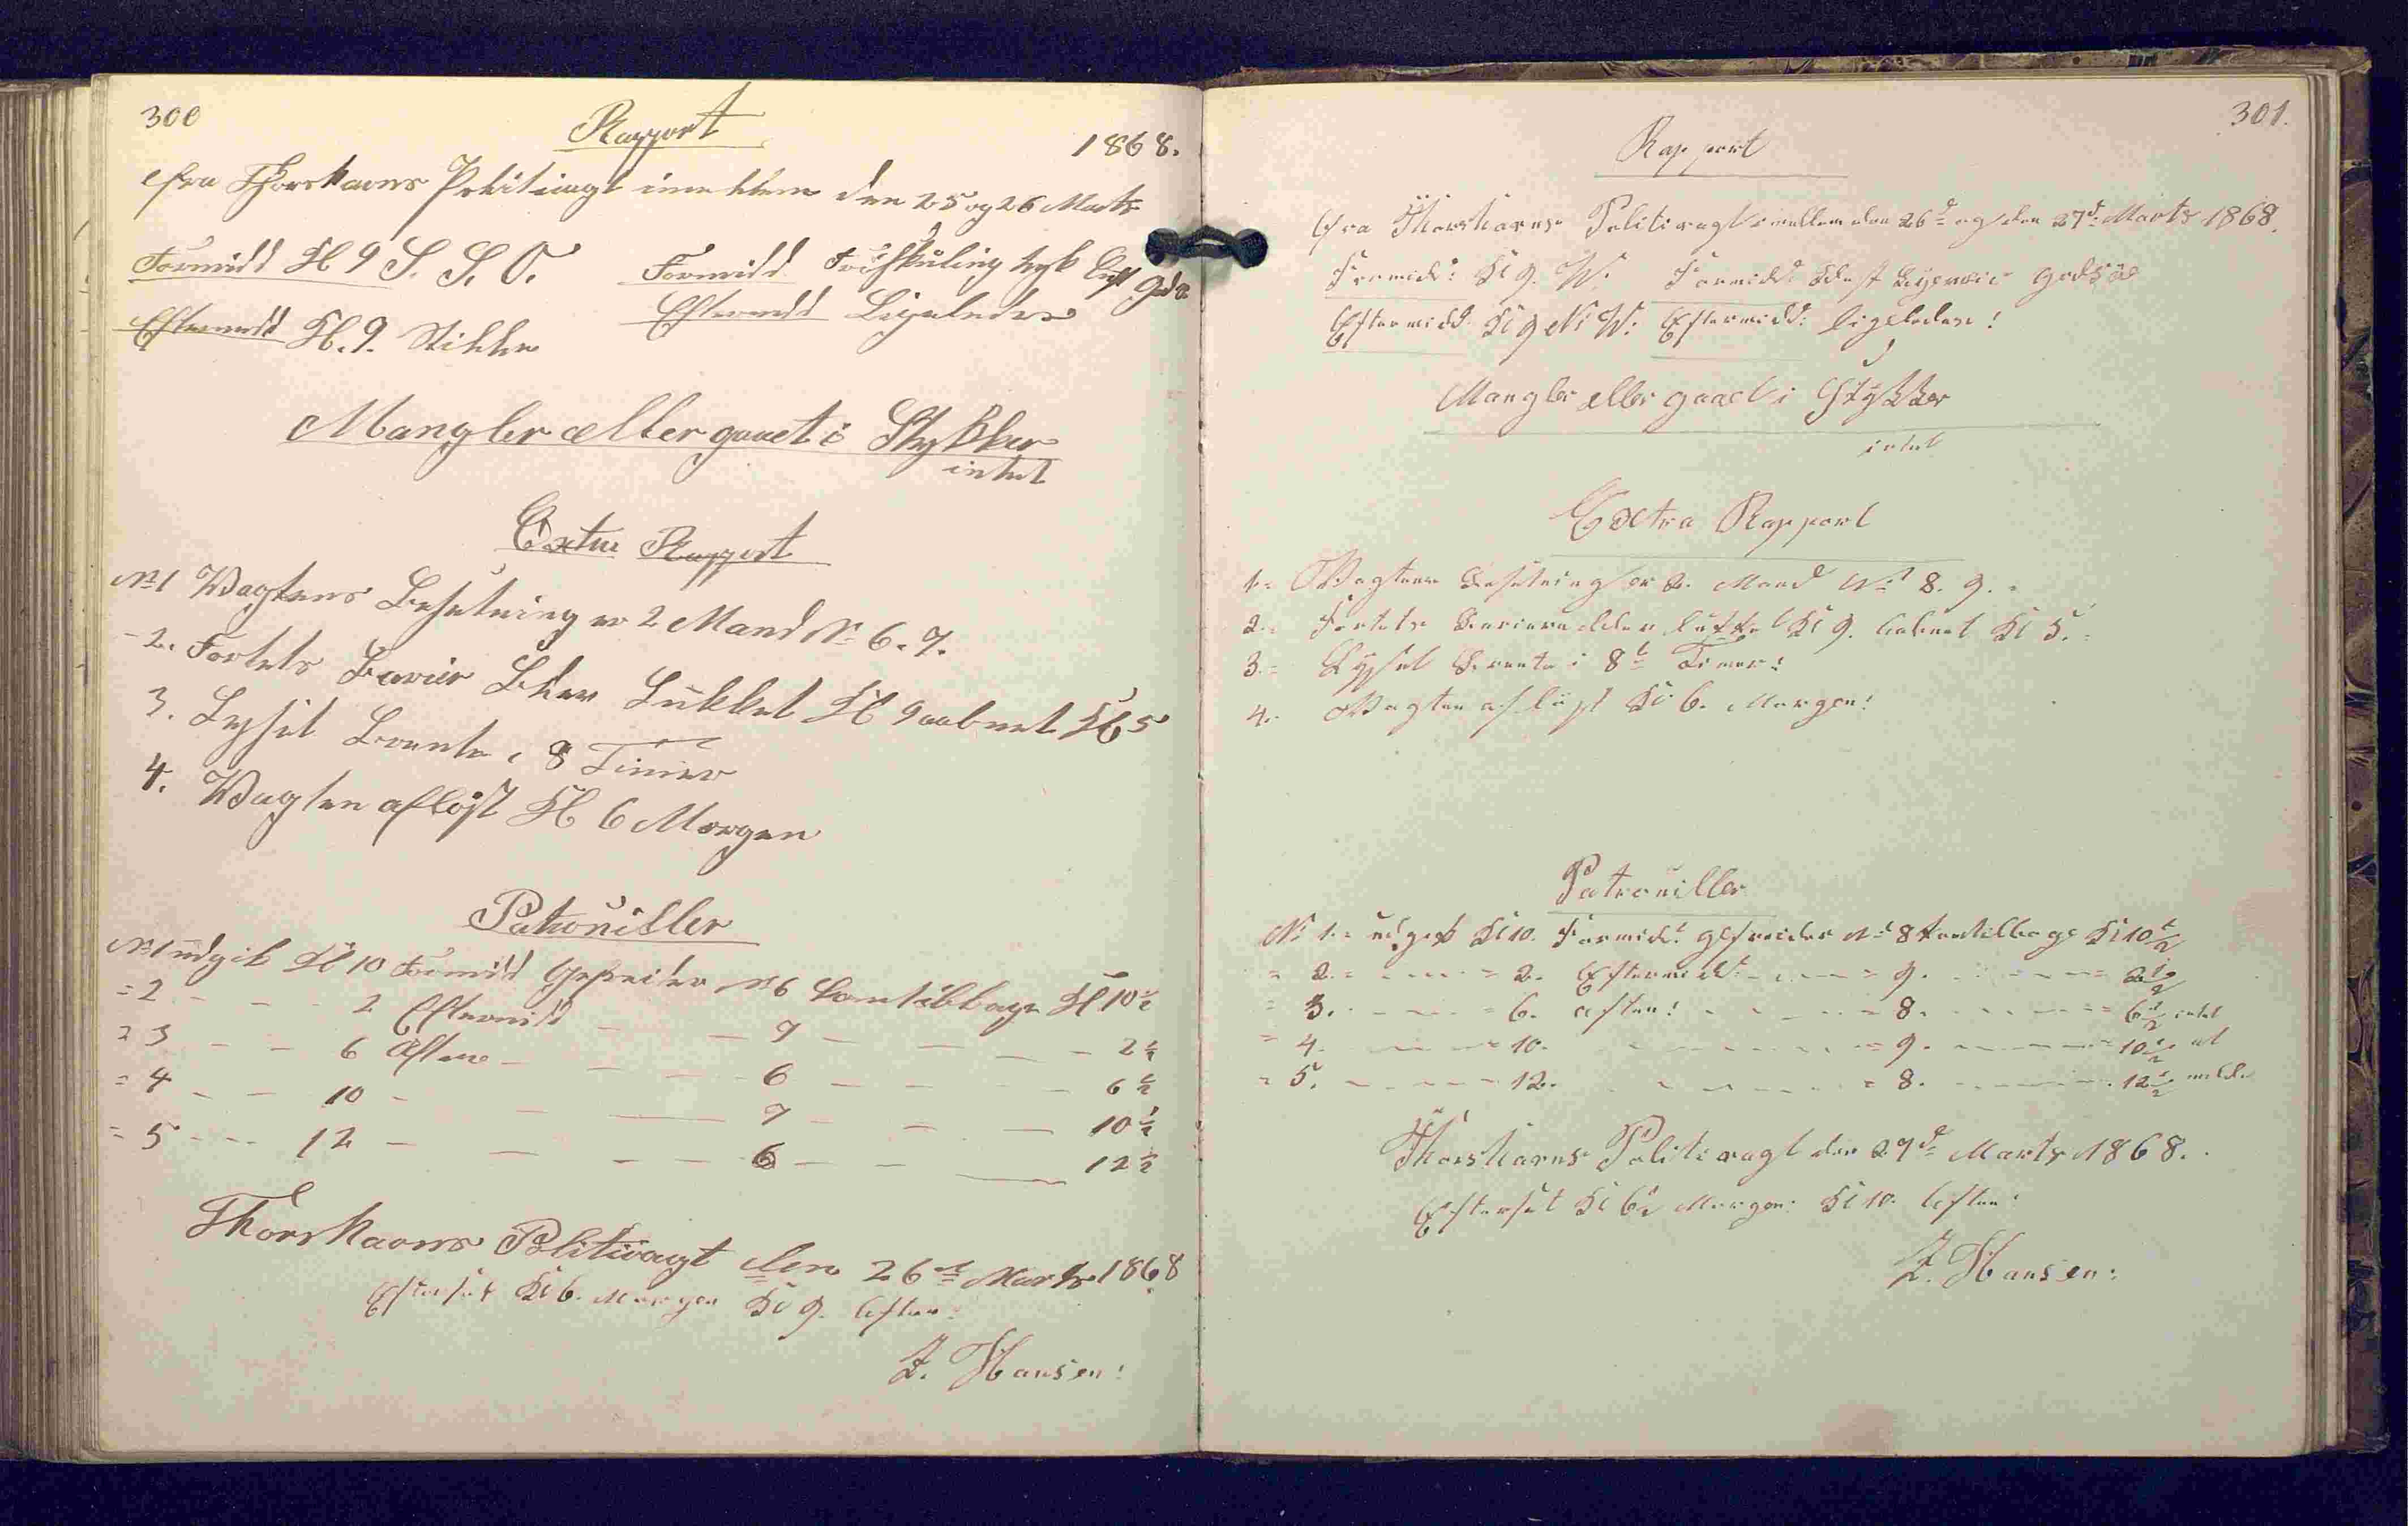 300
Rapport
1868.
fra Thorshavns Politivagt imellem den 25 og 26 Marts
Formidd Kl 9 S. S. O. Formidd Friskkuling tyk Luft
Eftermidd Kl. 9. Stille Eftermidd Ligeledes
Mangler eller gaaet i Stykker
intet
Extra Rapport
No 1 Wagtens Besetning er 2 Mand No 6. 7.
- 2. Fortets Barier Blev Lukket Kl 9 aabnet Kl 5
3. Lyset Brente i 8 Timer
4. Wagten afløst Kl 6 Morgen
Patrouiller
No 1 udgik Kl 10 Formidd Gefreider No 6 kom tilbage Kl 10 1/2
= 2 - - - 2 Eftermidd - - 7 - - - - 2 1/2
= 3 - - 6 Aften - - - - 6 - - - - 6 1/2
= 4 - - 10 - - - 7 - - - 10 1/2
= 5 - - - 12 - - - - 6 - - - 12 1/2
Thorshavns Politivagt den 26d Marts 1868
Efterset Kl 6. Morgen Kl 9. Aften:
Z. Hansen:
301.
Rapport
fra Thorshavns Politivagt imellem den 26d og den 27d Marts 1868.
Formidd: Kl 9. W. Formidd:
Eftermidd: Kl 9 N W: Eftermidd: ligeledes!
Mangler eller gaaet i Stykker
intet
Extra Rapport
1. = Wagtens Besetning er 2. Mand No 8. 9. -
2. = Fortets Bariere blev lukket Kl 9. aabnet Kl 5. =
3. = Lyset Brente i 8t Timer!
4. - Wagten afløst Kl 6. Morgen!
Patrouiller
No 1. = udgik Kl 10. Formidd: gefreider No 8 kom tilbage Kl 10 1/2
= 2. = - - - - = 2. Eftermidd: - - - = 9. - - - - = 2 1/2
= 3. - - - - = 6. aften! - - - - = 8. - - - - = 6 1/2 intet
= 4. - - - = 10. - - - - - = 9. - - - - = 10 1/2 at
= 5. - - - - 12. - - - - - = 8. - - - - 12 1/2 melde
Thorshavns Politivagt den 27d Marts 1868.
Efterset Kl 6 1/2 Morgen: Kl 10. Aften:
Z. Hansen: